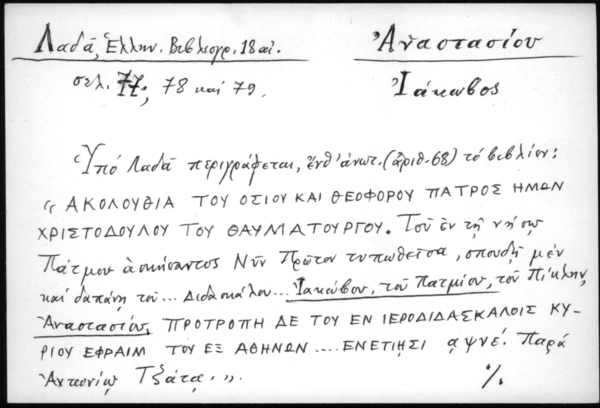 Λαδᾶ, Ἑλλην. Βιβλιογρ. 18 αἰ.
Ἀναστασίου
σελ. 77, 78 καί 79.
Ἰάκωβος
Ὑπό Λαδᾶ περιγράφεται, ἔνθ' ἀνωτ. (ἀριθ. 68) τό βιβλίον:
« ΑΚΟΛΟΥΘΙΑ ΤΟΥ ΟΣΙΟΥ ΚΑΙ ΘΕΟΦΟΡΟΥ ΠΑΤΡΟΣ ΗΜΩΝ
ΧΡΙΣΤΟΔΟΥΛΟΥ ΤΟΥ ΘΑΥΜΑΤΟΥΡΓΟΥ. Τοῦ ἐν τῇ νήσῳ
Πάτμου ἀσκήσαντος Νῦν Πρῶτον τυπωθεῖσα, σπουδῇ μέν
καί δαπάνῃ τοῦ... Διδασκάλου... Ἰακώβου, τοῦ Πατμίου, τοῦ Πίκλην
Ἀναστασίου, ΠΡΟΤΡΟΠΗ ΔΕ ΤΟΥ ΕΝ ΙΕΡΟΔΙΔΑΣΚΑΛΟΙΣ ΚΥ-
ΡΙΟΥ ΕΦΡΑΙΜ ΤΟΥ ΕΞ ΑΘΗΝΩΝ .... ΕΝΕΤΙΗΣΙ αψνέ. Παρά
Ἀντωνίῳ Τζάτᾳ. ».
%